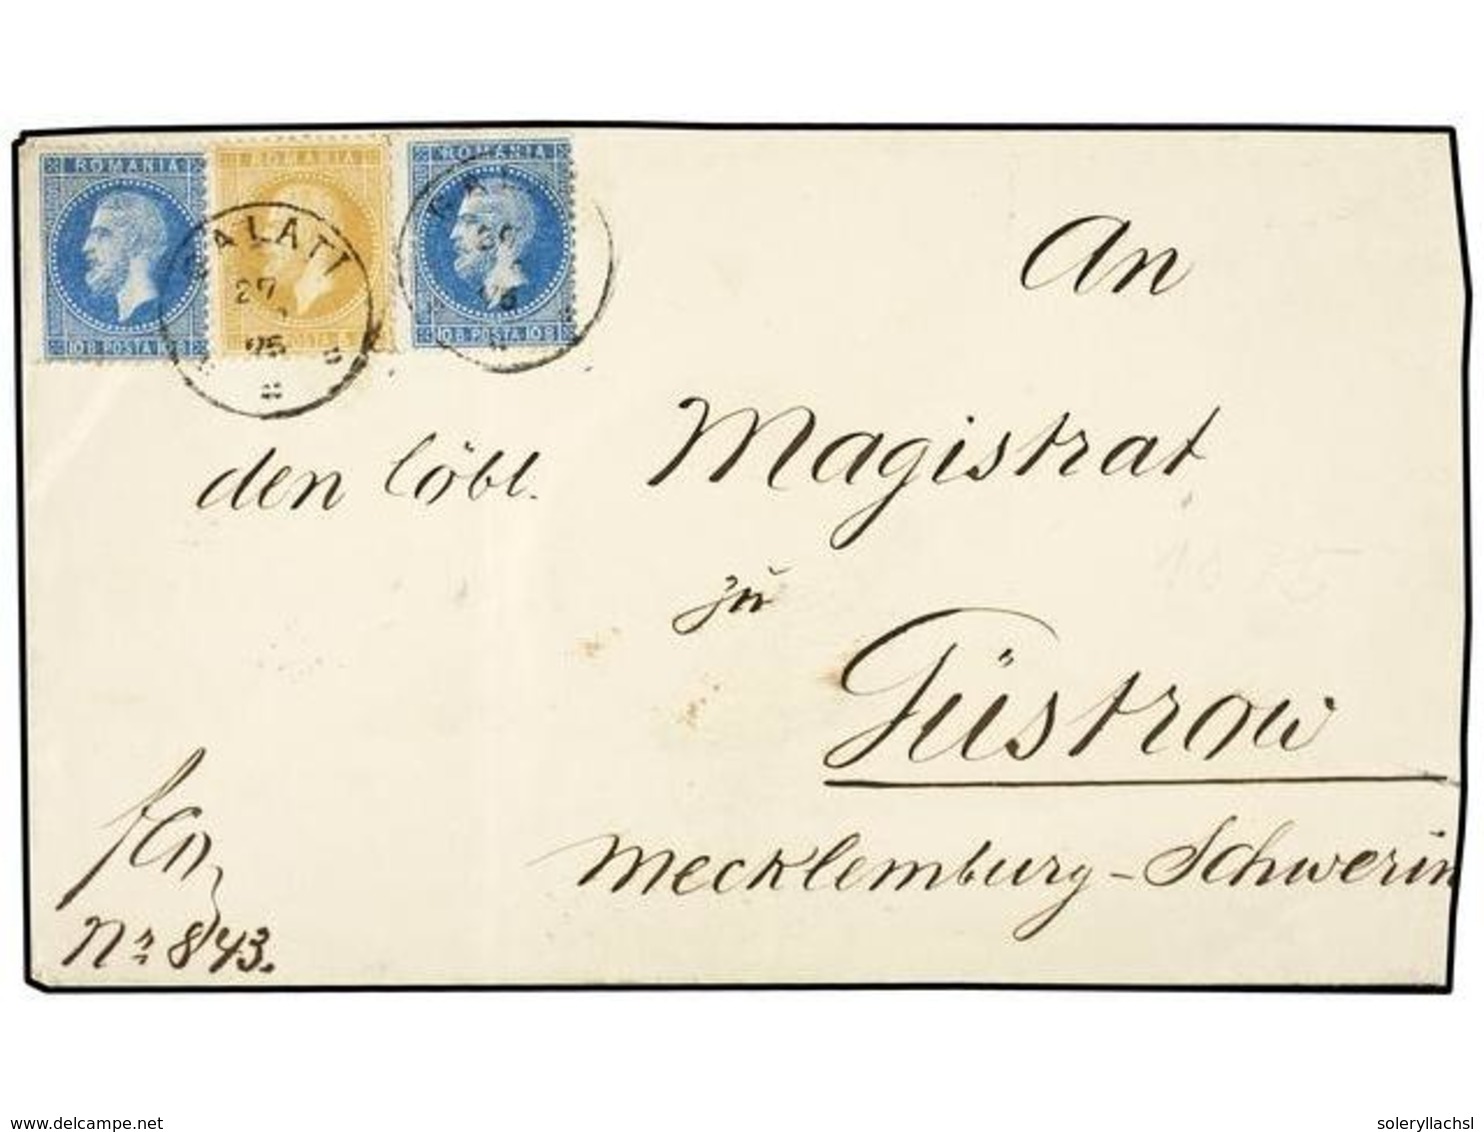 ROMANIA ROMANIA ROMANIA
GALATI
27
75
10 B. POSTA 10 B POSTA 5 10 B. POSTA 10 B
An
den löbl. Magistrat
zu
Güstrow
Mecklemburg-Schwerin
No 843.
delcampe.net
soleryllachsl